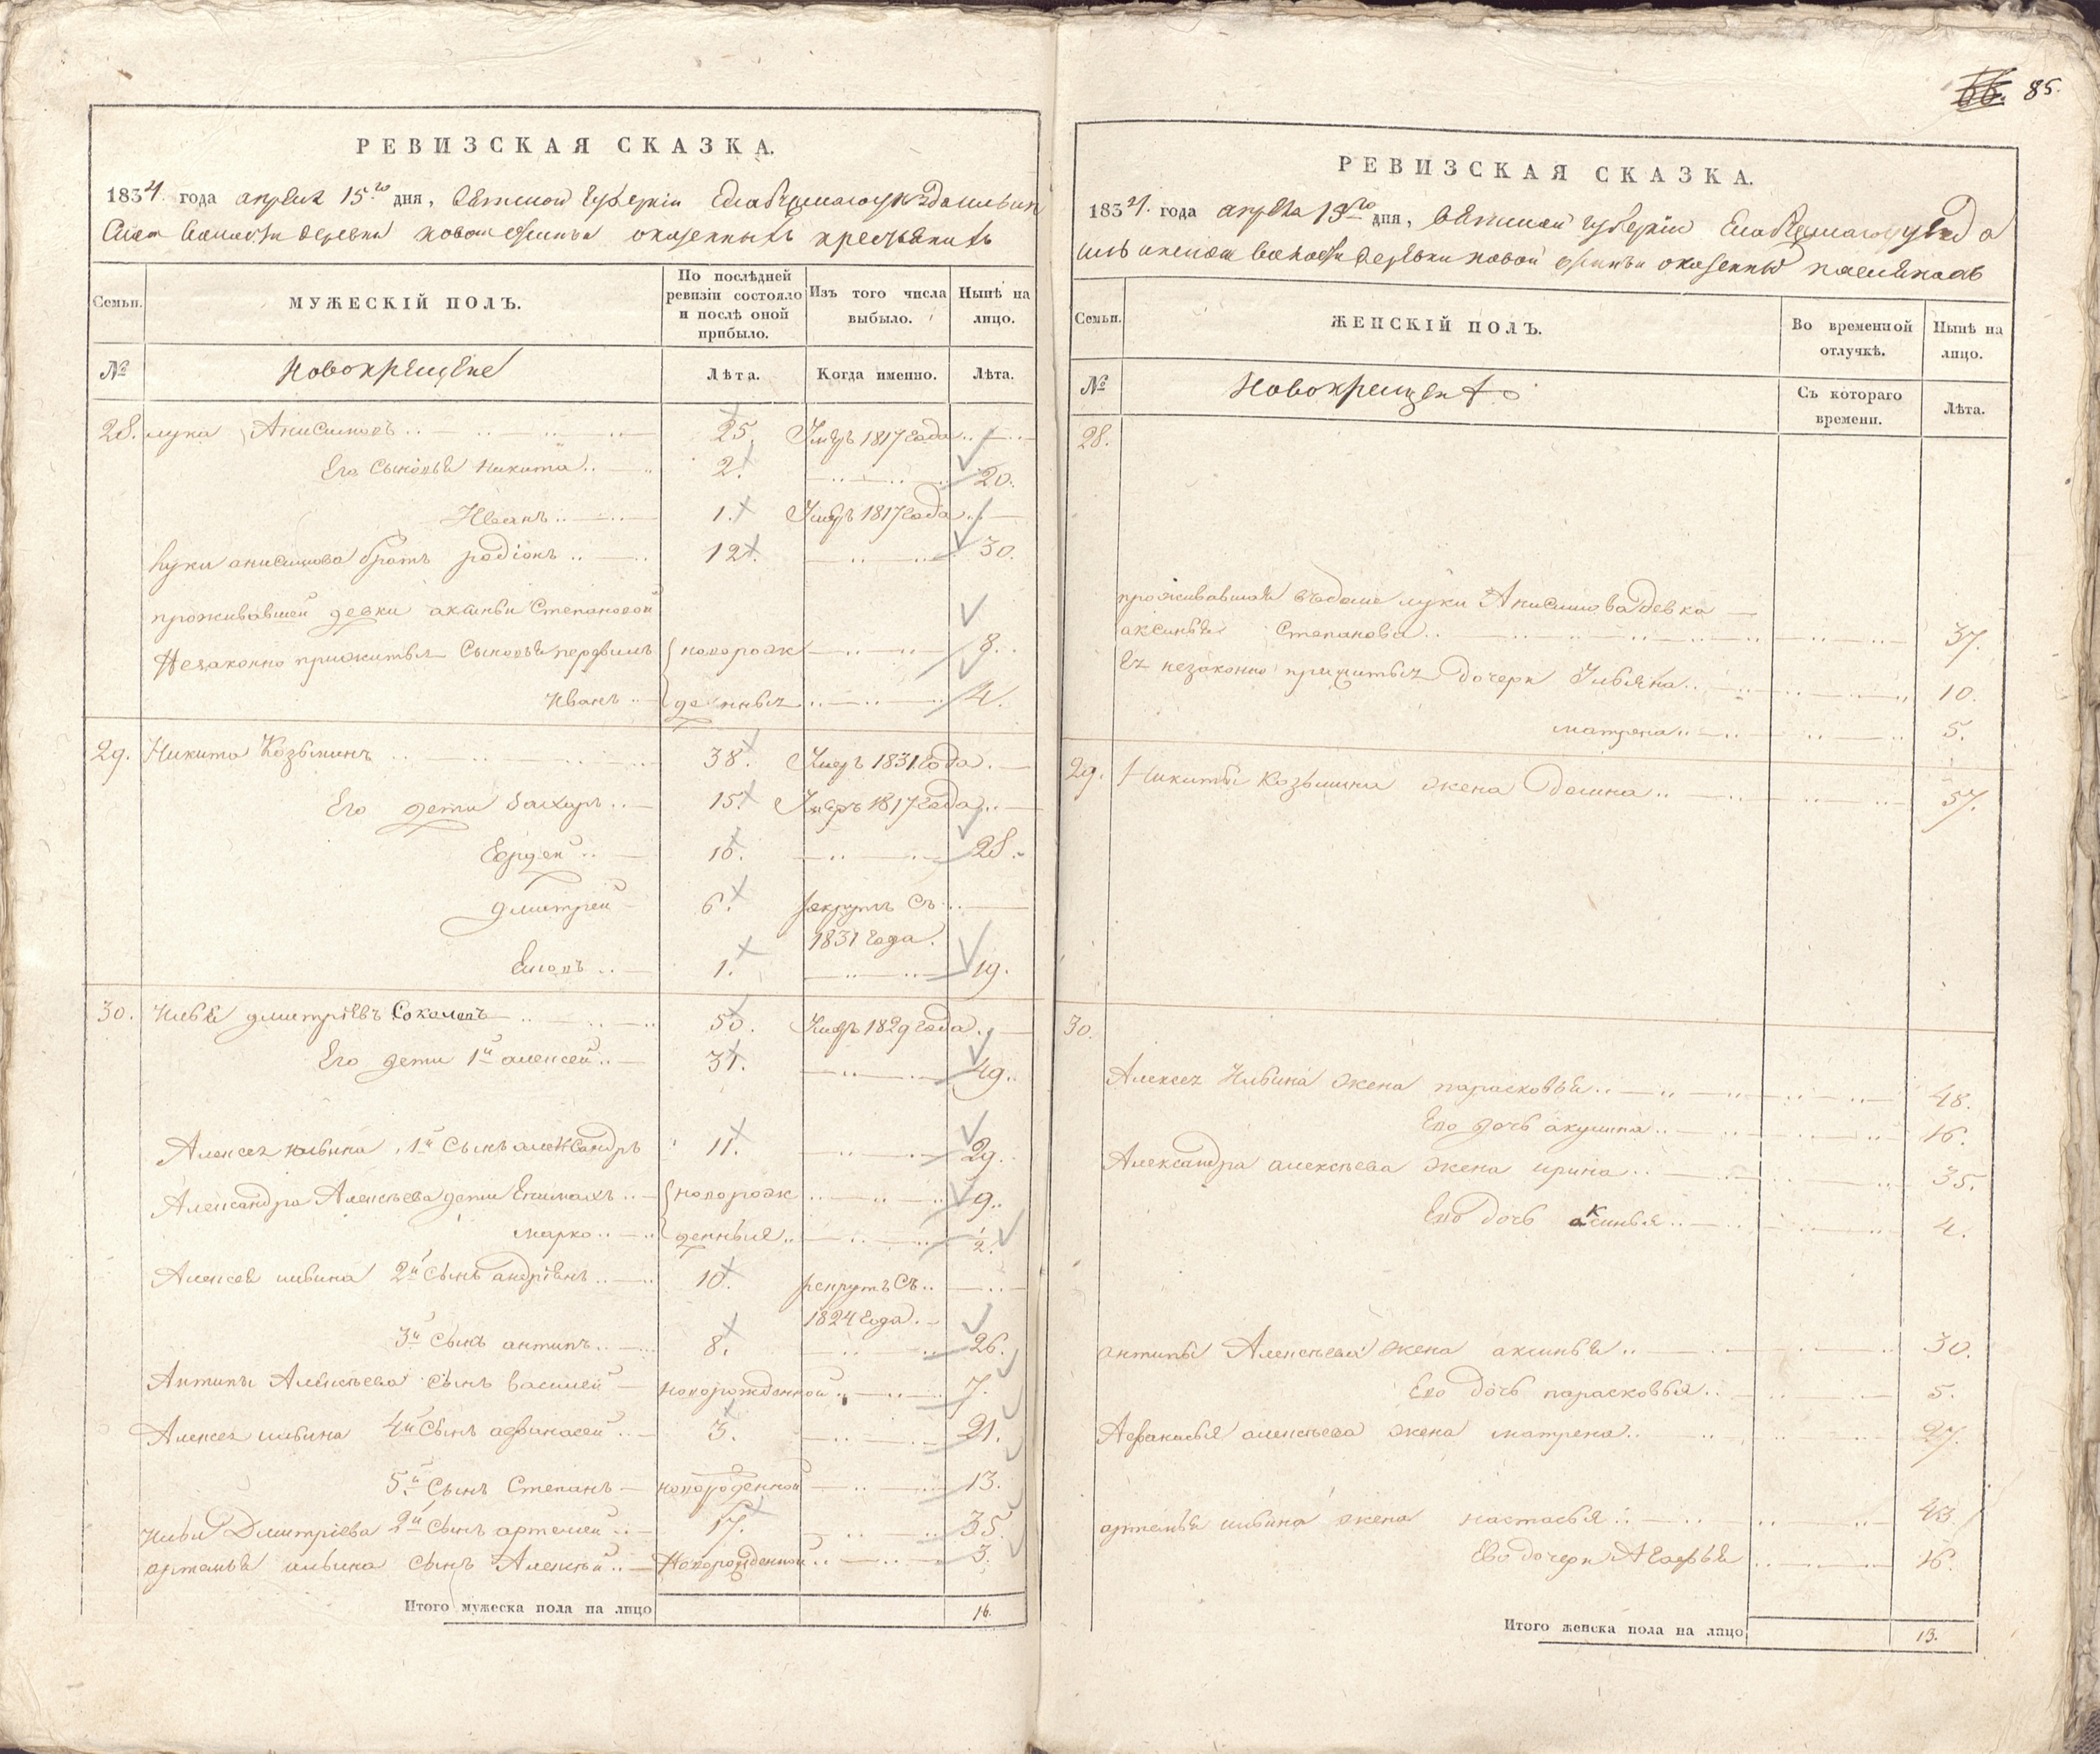 66. 85.
РЕВИЗСКАЯ СКАЗКА.
1834. года апреля 15го дня, Вятской губерніи
волости деревни новой оказенныхъ крестьянахъ
Семьи.
МУЖЕСКІЙ ПОЛЪ.
По послѣдней ревизіи состояло и послѣ оной прибыло.
Изъ того числа выбыло.
Нынѣ на лицо.
№
Новокрещене
Лѣта.
Когда именно.
Лѣта.
28. лука Анисимовъ 25. Умеръ 1817 года
Его сыновья никита 2. 20.
Иванъ 1. Умеръ 1817 года
луки анисимова братъ родіонъ 12. 30.
проживавшей девки аксиньи Степановой
Незаконно прижитыя Сыновья новорож 8.
Иванъ денныя 4.
29. Никита Козьминъ 38. Умеръ 1831 года
Его дети Захаръ 15. Умеръ 1817 года
10. 28.
дмитрей 6. рекрутъ съ
1831 года.
1. 19.
30. Илья дмитріевъ Соколовъ 50. Умеръ 1829 года
Его дети 1й алексей 31. 49.
Алексея ильина 1й Сынъ александръ 11. 29.
Александра Алексѣева дети Епимахъ новорож 9.
марко денныя 2.
Алексея ильина 2й Сынъ андріянъ 10. рекрутъ Съ
1824 года.
3й Сынъ антипъ 8. 26.
Антипы Алексѣева Сынъ василей новорожденной 7.
Алексея ильина 4й Сынъ афонасей 3. 21.
5й Сынъ Степанъ новороденной 13.
Ильи Дмитріева 2й Сынъ артемей 17. 35.
артемья ильина сынъ Алексѣй Новорожденной 3.
Итого мужеска пола на лицо 16.
РЕВИЗСКАЯ СКАЗКА.
1834. года апреля 15го дня, Вятской губерніи уезда
волости деревни новой
Семьи.
ЖЕНСКІЙ ПОЛЪ.
Во временной отлучкѣ.
Нынѣ на лицо.
№
Новокрещены
Съ котораго времени.
Лѣта.
28.
проживавшая въ доме луки Анисимова девка
аксинья Степанова 37.
Ея незаконно прижитыя дочери Ульяна 10.
матрена 5.
29. Никиты Козьмина жена домна 57.
30.
Алексея Ильина жена парасковья 48.
Его дочь акулина 16.
Александра алексѣева жена ирина 35.
Ево дочь аксинья 4.
антипы Алексѣева жена аксинья 30.
Ево дочь парасковья 5.
Афанасья алексѣева жена матрена 27.
артемья ильина жена настасья 43.
Ево дочери Агафья 16.
Итого женска пола на лицо 13.